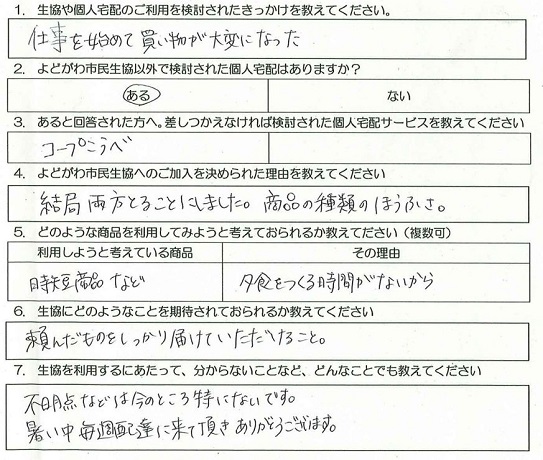 1. 生協や個人宅配のご利用を検討されたきっかけを教えてください。
仕事を始めて買い物が大変になった
2. よどがわ市民生協以外で検討された個人宅配はありますか？
ある ない
3. あると回答された方へ。差しつかえなければ検討された個人宅配サービスを教えてください
コープこうべ
4. よどがわ市民生協へのご加入を決められた理由を教えてください
結局両方とることにしました。商品の種類のほうふさ。
5. どのような商品を利用してみようと考えておられるか教えてださい（複数可）
利用しようと考えている商品 その理由
時短商品など 夕食をつくる時間がないから
6. 生協にどのようなことを期待されておられるか教えてください
頼んだものをしっかり届けていただけること。
7. 生協を利用するにあたって、分からないことなど、どんなことでも教えてください
不明点などは今のところ特にないです。
暑い中毎週配達に来て頂きありがとうございます。